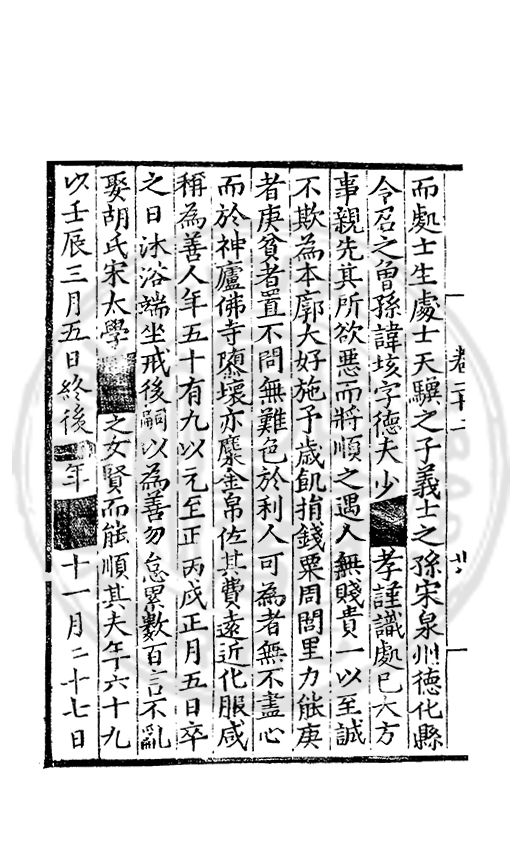 而處士生處士天驥之子義士之孫宋泉州德化縣
令召之曾孫諱垓字德夫少孝謹識處已大方
事親先其所欲惡而將順之遇人無賤貴一以至誠
不欺為本廓大好施予歲飢捐錢粟周閭里力能庚
者庚貧者置不問無難色於利人可為者無不盡心
而於神廬佛寺隳壞亦糜金帛佐其費遠近化服咸
稱為善人年五十有九以元至正丙戌正月五日卒
之日沐浴端坐戒後嗣以為善勿怠累數百言不亂
娶胡氏宋太學之女賢而能順其夫年六十九
以壬辰三月五日終後年十一月二十七日
卷二十一